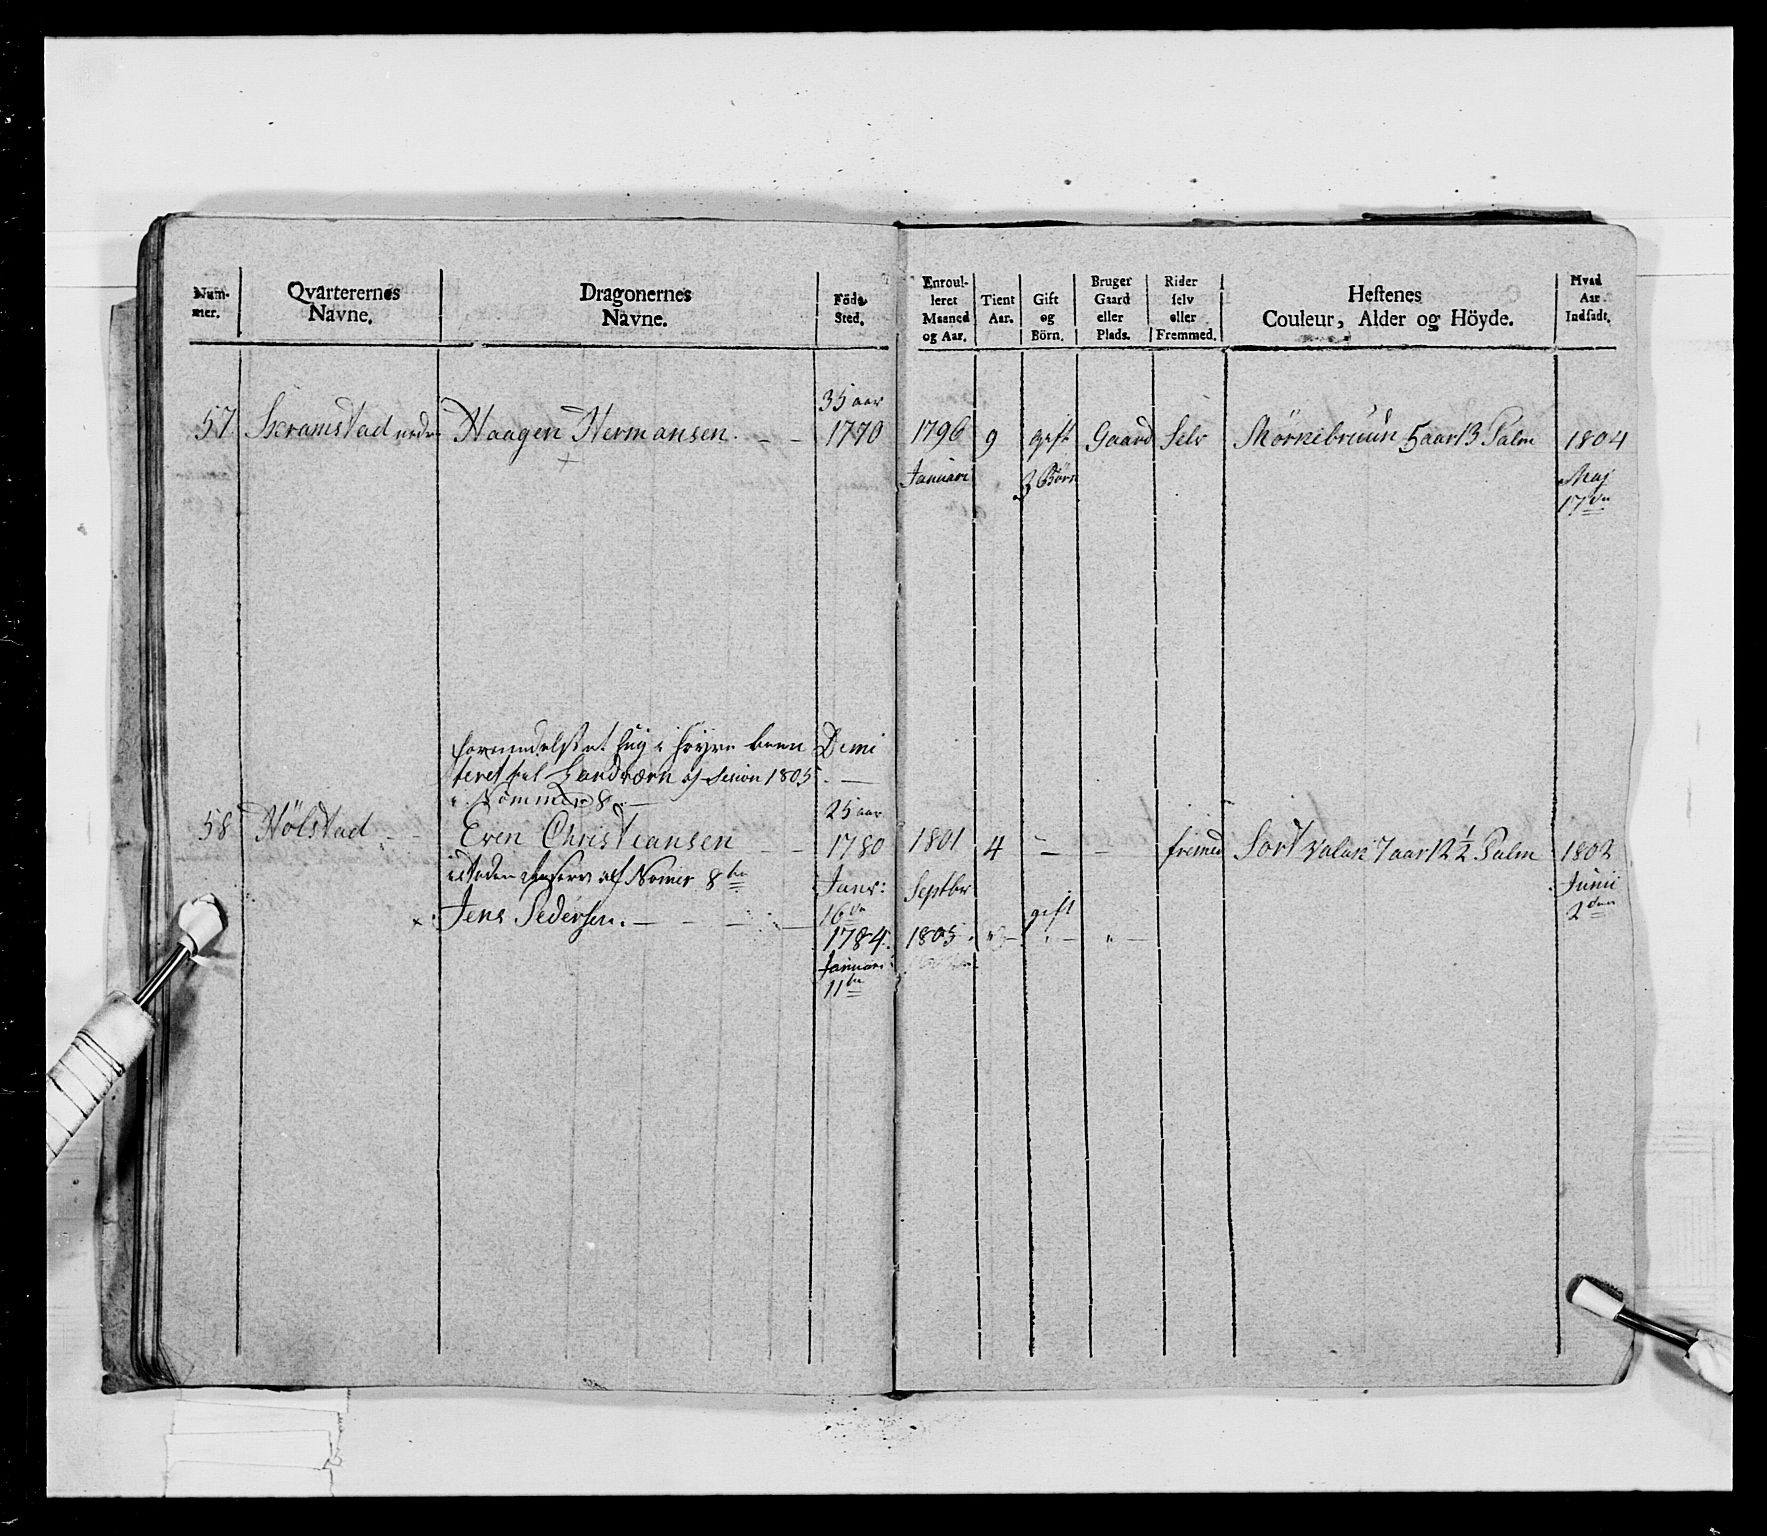 Num-
mer.
Qvarterernes
Navne.
Dragonernes
Navne.
Föde
Sted.
Enroul-
leret
Maaned
og Aar.
Tient
Aar.
Gift
og
Börn.
Bruger
Gaard
eller
Plads.
Rider
selv
eller
Fremmed.
Hestenes
Couleur, Alder og Höyde.
Hvad
Aar
Indsadt.
35 aar
57 Skramstad nedre Haagen Hermansen. – – 1770 1796 9 gift Gaard Selv Mörkebruun 5 aar 13 Palm 1804
Januari 3 Börn Maj
17de
formedelst et hug i höyre been Dimi
teret til Landværn af Sesion 1805
Nommer 8
25 aar
58 Hölstad – Even Christiansen – – 1780 1801 4 – – fremed Sort Valak 7 aar 12 1/2 Palm 1802
isteden af Nomer 8de Janr: Septbr Junii
16de gift 2den
× Jens Pedersen. – – – 1784. 1805.
Januari
11te